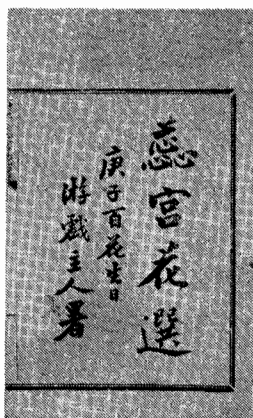 蕊宮花選
庚子百花生日
游戲主人署